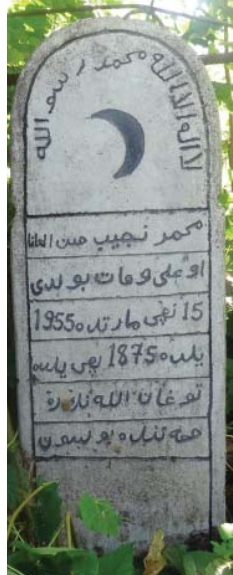 لا اله الا الله محمد رسو الله
محمد نجيب حبن العانا
اوغلى وفات بولدى
15 نچى مارتده 1955
يلده 1875 نچى يلده
توغان الله
بولسون